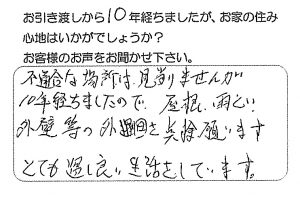 お引き渡しから10年経ちましたが、お家の住み
心地はいかがでしょうか?
お客様のお声をお聞かせ下さい。
不適合な場所は見当りませんが
10年経ちましたので、屋根、雨とい
外壁等の外廻りを点検願います
とても過し良い生活をしています。